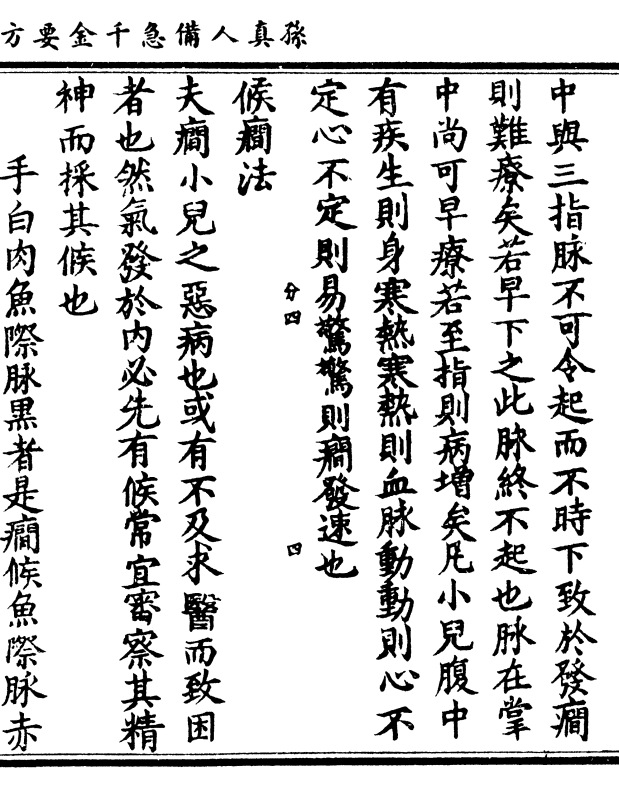 孫真人備急千金要方
中與三指脉不可令起而不時下致於發癇
則難療矣若早下之此脉終不起也脉在掌
中尚可早療若至指則病增矣凡小兒腹中
有疾生則身寒熱寒熱則血脉動動則心不
定心不定則易驚驚則癇發速也
分四
四
候癇法
夫癇小兒之惡病也或有不及求醫而致困
者也然氣發於内必先有候常宜審察其精
神而採其候也
手白肉魚際脉黑者是癇候魚際脉赤